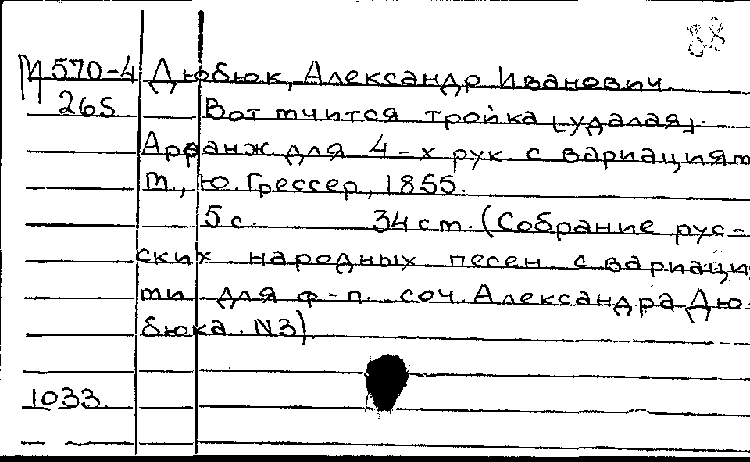 88
М 570-4 Дюбюк, Александр Иванович.
265 Вот мчится тройка [удалая].
Арранж. для 4-х рук с вариациям
М., Ю. Грессер, 1855.
5 с. 34 см. (Собрание рус-
ских народных песен с вариаци
ми для ф-п. соч. Александра Дю-
бюка. N3)
1033.